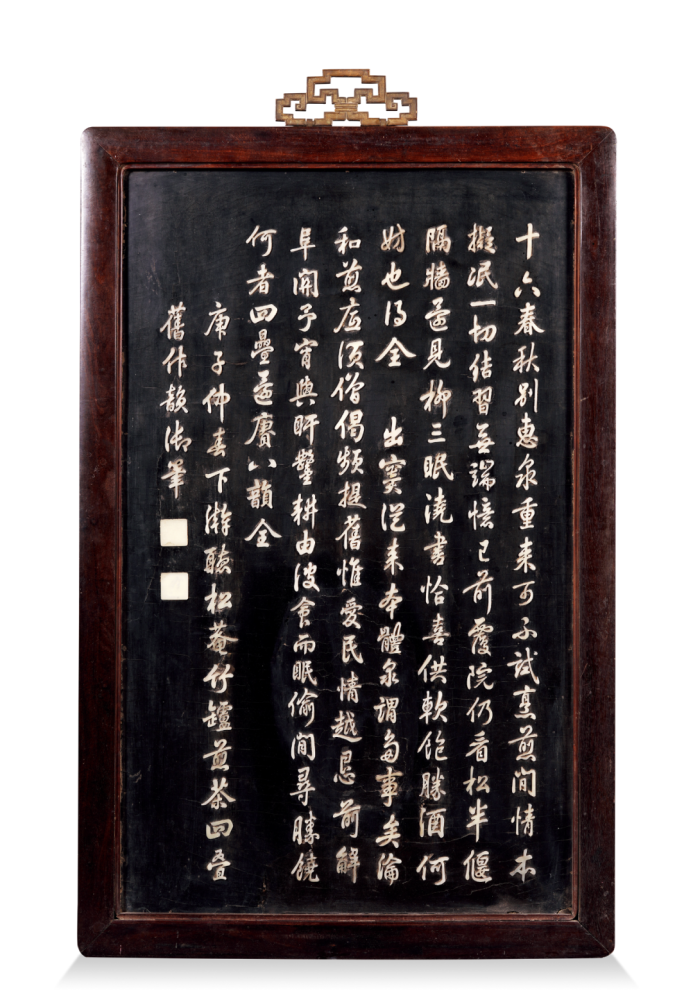 十六春秋别惠泉重来可不試烹煎閒情本
擬泯一切结習無端憶已前霞院仍看松半偃
隔牆遥見柳三眠澆書恰喜供軟飽勝酒何
妨也得全 出竇從来本體泉謂多事矣淪
和煎应須僧偈頻提舊惟愛民情越前解
阜開予宵與旰鑿耕由汝食而眠偷閒尋勝饒
何者四疊遥賡八韻全
庚子仲春下澣聽松菴竹罏煎茶四叠
舊作韻御筆